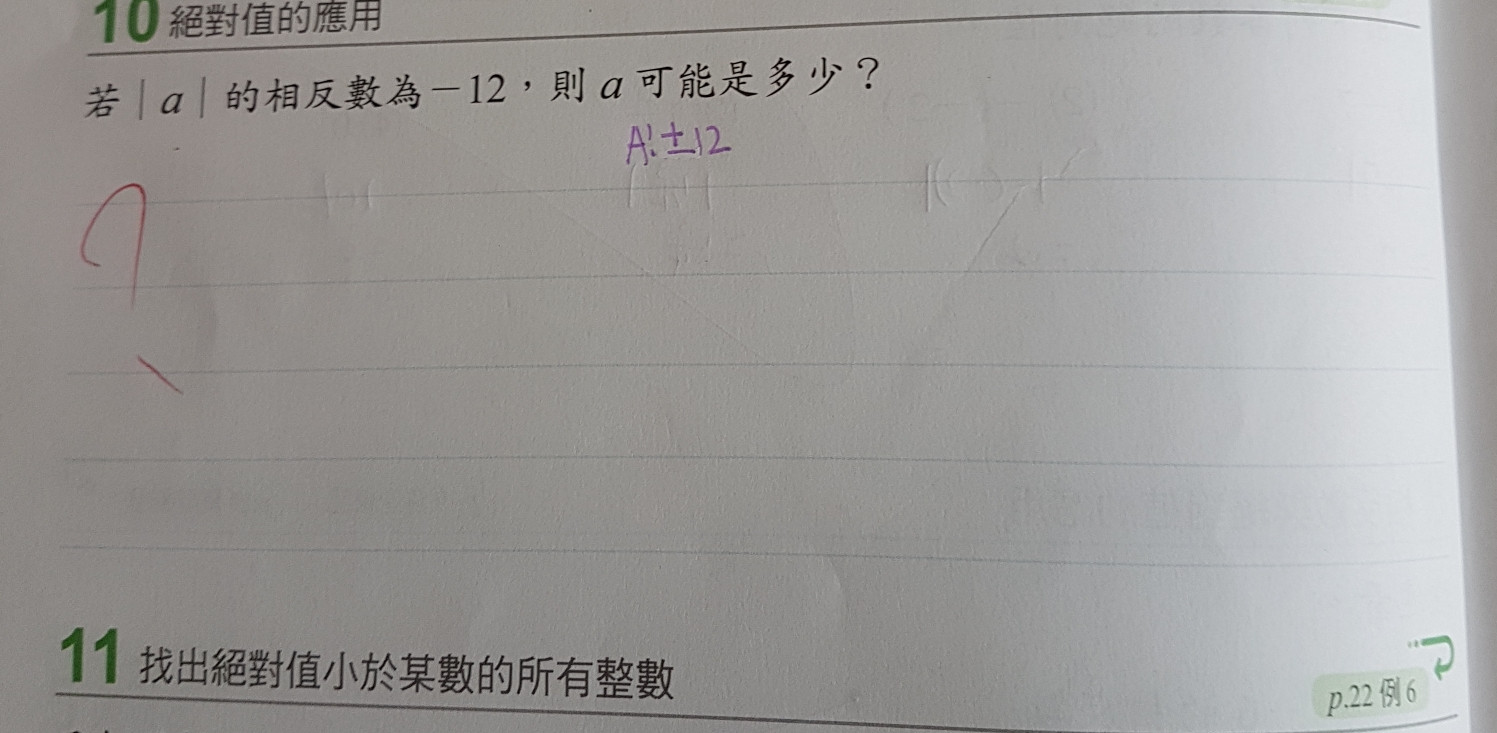 10 絕對值的應用
若|a|的相反數為－12，則 a 可能是多少？
A: ±12
11 找出絕對值小於某數的所有整數
p.22 例 6